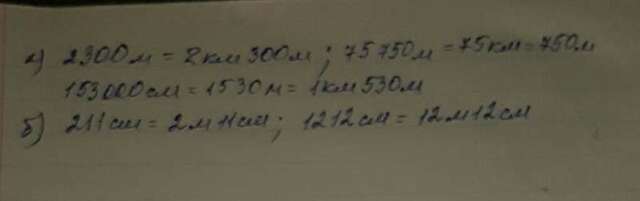 а) 2300м = 2км 300м; 75750м = 75км = 750м
153000см = 1530м = 1км 530м
б) 211см = 2м 11см; 1212см = 12м 12см